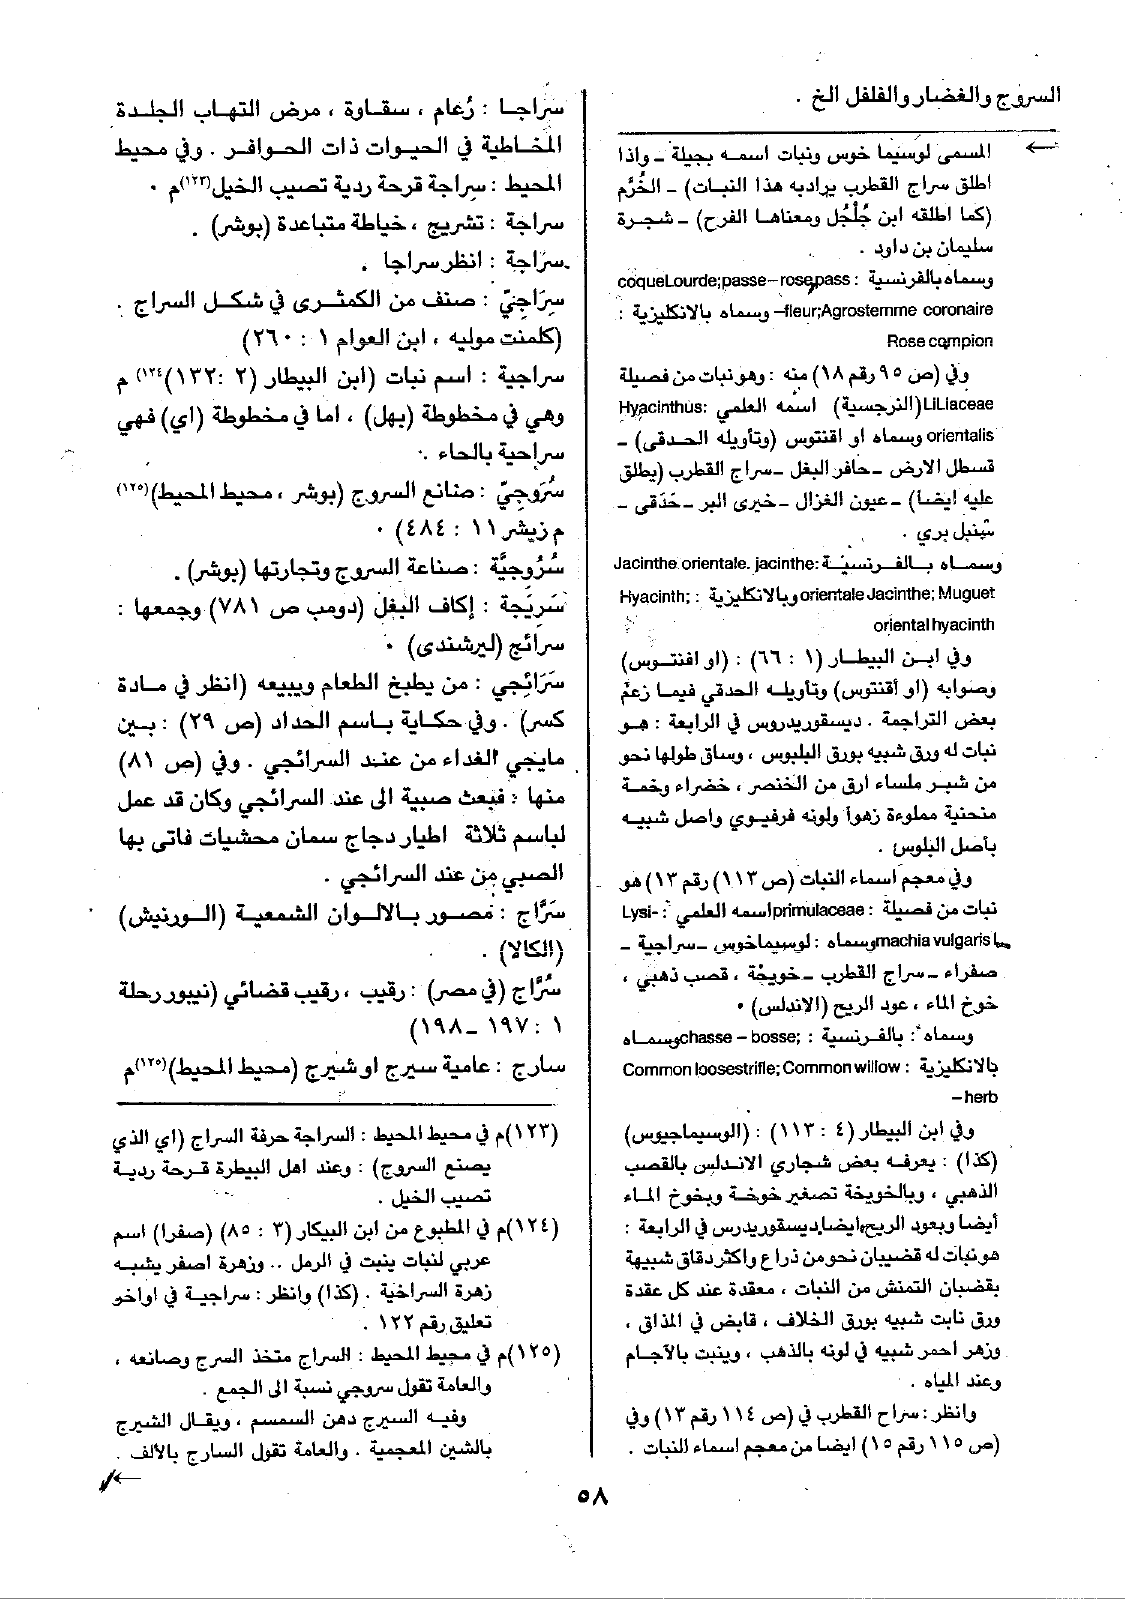 السروج والغضار والفلفل الخ .
المسمى لوسيما خوس ونبات اسمه بجيلة – واذا
اطلق سراج القطرب يرادبه هذا النبات) – الخُرَّم
(كما اطلقه ابن جُلْجُل ومعناها الفرح) – شجرة
سليمان بن داود .
وسماه بالفرنسية : coqueLourde;passe–rose;pass
–fleur;Agrostemme coronaire وسماه بالانكليزية :
Rose compion
وفي (ص ٩٥ رقم ١٨) منه : وهو نبات من فصيلة
LiLiaceae (النرجسية) اسمه العلمي :Hyacinthus
orientalis وسماه او اقنتوس (وتأويله الحدقى) –
قسطل الارض – حافر البغل – سراج القطرب (يطلق
عليه ايضا) – عيون الغزال – خيرى البر – حَدَقى –
سُنبل بري .
وسماه بالفرنسية :Jacinthe orientale. jacinthe
orientale Jacinthe; Muguet وبالانكليزية : Hyacinth;
oriental hyacinth
وفي ابن البيطار (١ : ٦٦) : (او افنتوس)
وصوابه (او أقنتوس) وتأويله الحدقي فيما زعم
بعض التراجمة . ديسقوريدروس في الرابعة : هو
نبات له ورق شبيه بورق البلبوس ، وساق طولها نحو
من شبر ملساء ارق من الخنصر ، خضراء وخمة
منحنية مملوءة زهراً ولونه فرفيوي واصل شبيه
بأصل البلوس .
وفي معجم اسماء النبات (ص ١١٣) رقم ١٣) هو
نبات من فصيلة : primulaceae اسمه العلمي : Lysi-
machia vulgaris وسماه : لوسيماخوس – سراجية –
صفراء – سراج القطرب – خويخة ، قصب ذهبي ،
خوخ الماء ، عود الريح (الاندلس) .
وسماه : بالفرنسية : chasse – bosse; وسماه
بالانكليزية : Common loosestrifle; Common willow
– herb
وفي ابن البيطار (٤ : ١١٣) : (الوسيماجيوس)
(كذا) : يعرفه بعض شجاري الاندلس بالقصب
الذهبي ، وبالخويخة تصغير خوخة وبخوخ الماء
أيضا وبعود الريح ايضا. ديسقوريدرس في الرابعة :
هو نبات له قضيبان نحو من ذراع واكثر دقاق شبيهة
بقضبان التمنش من النبات ، معقدة عند كل عقدة
ورق نابت شبيه بورق الخلاف ، قابض في المذاق ،
وزهر احمر شبيه في لونه بالذهب ، وينبت بالآجام
وعند المياه .
وانظر : سراج القطرب في (ص ١١٤ رقم ١٣) وفي
(ص ١١٥ رقم ١٥) ايضا من معجم اسماء النبات .
سراجا : رُعام ، سقاوة ، مرض التهاب الجلدة
المخاطية في الحيوات ذات الحوافر . وفي محيط
المحيط : سراجة قرحة ردية تصيب الخيل(١٢٣)م .
سراجة : تشريج ، خياطة متباعدة (بوشر) .
سرّاجة : انظر سراجا .
سِرَاجيّ : صنف من الكمثرى في شكل السراج .
(كلمنت موليه ، ابن العوام ١ : ٢٦٠)
سراجية : اسم نبات (ابن البيطار (٢ : ١٣٢)(١٢٤) م
وهي في مخطوطة (بهل) ، اما في مخطوطة (اي) فهي
سراحية بالحاء .
سُرُوجِيّ : صانع السروج (بوشر ، محيط المحيط)(١٢٥)
م زيشر ١١ : ٤٨٤) .
سُرُوجيَّة : صناعة السروج وتجارتها (بوشر) .
سَرِيجَة : إكاف البغل (دومب ص ٧٨١) وجمعها :
سرائج (ليرشندى) .
سَرَائِجي : من يطبخ الطعام ويبيعه (انظر في مادة
كسر) . وفي حكاية باسم الحداد (ص ٢٩) : بين
مايجي الغداء من عند السرائجي . وفي (ص ٨١)
منها : فبعث صبية الى عند السرائجي وكان قد عمل
لباسم ثلاثة اطيار دجاج سمان محشيات فاتى بها
الصبي من عند السرائجي .
سَرَّاج : مصور بالالوان الشمعية (الورنيش)
(الكالا) .
سُرَّاج (في مصر) : رقيب ، رقيب قضائي (نيبور رحلة
١ : ١٩٧ – ١٩٨)
سارج : عامية سيرج او شيرج (محيط المحيط)(١٢٥)م
(١٢٣)م في محيط المحيط : السراجة حرفة السراج (اي الذي
يصنع السروج) : وعند اهل البيطرة قرحة ردية
تصيب الخيل .
(١٢٤)م في المطبوع من ابن البيكار (٣ : ٨٥) (صفرا) اسم
عربي لنبات ينبت في الرمل .. وزهرة اصفر يشبه
زهرة السراخية . (كذا) وانظر : سراجية في اواخو
تعليق رقم ١٢٢ .
(١٢٥)م في محيط المحيط : السراج متخذ السرج وصانعه ،
والعامة تقول سروجي نسبة الى الجمع .
وفيه السيرج دهن السمسم ، ويقال الشيرج
بالشين المعجمية . والعامة تقول السارج بالألف .
٥٨